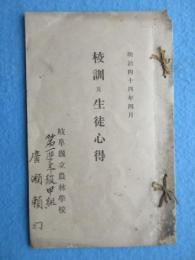 明治四十四年四月
校訓及生徒心得
岐阜縣立農林學校
第一學年級甲組
廣瀬頼